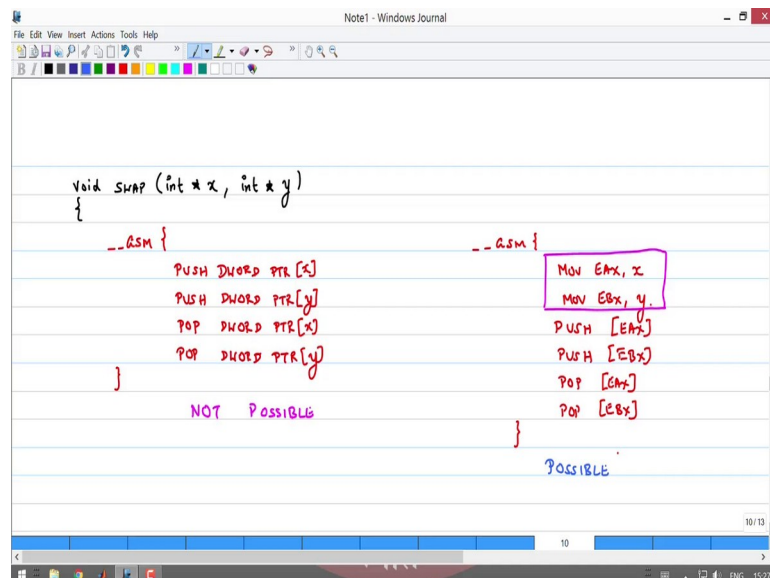 Note1 - Windows Journal
File Edit View Insert Actions Tools Help
B I
void SWAP (int * x, int * y)
{
__asm {
PUSH DWORD PTR [x]
PUSH DWORD PTR [y]
POP DWORD PTR [x]
POP DWORD PTR [y]
}
NOT POSSIBLE
__asm {
MOV EAX, x
MOV EBX, y.
PUSH [EAX]
PUSH [EBX]
POP [EAX]
POP [EBX]
}
POSSIBLE
10 / 13
10
ENG 15:27